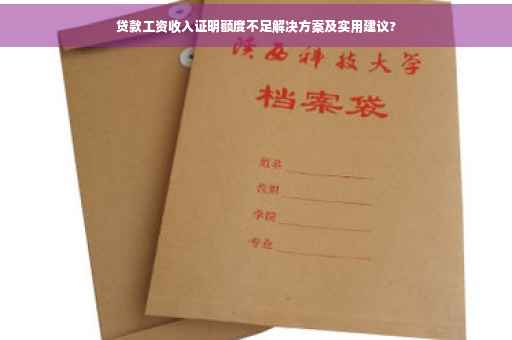 贷款工资收入证明额度不足解决方案及实用建议?
陕西科技大学
档案袋
学院
专业